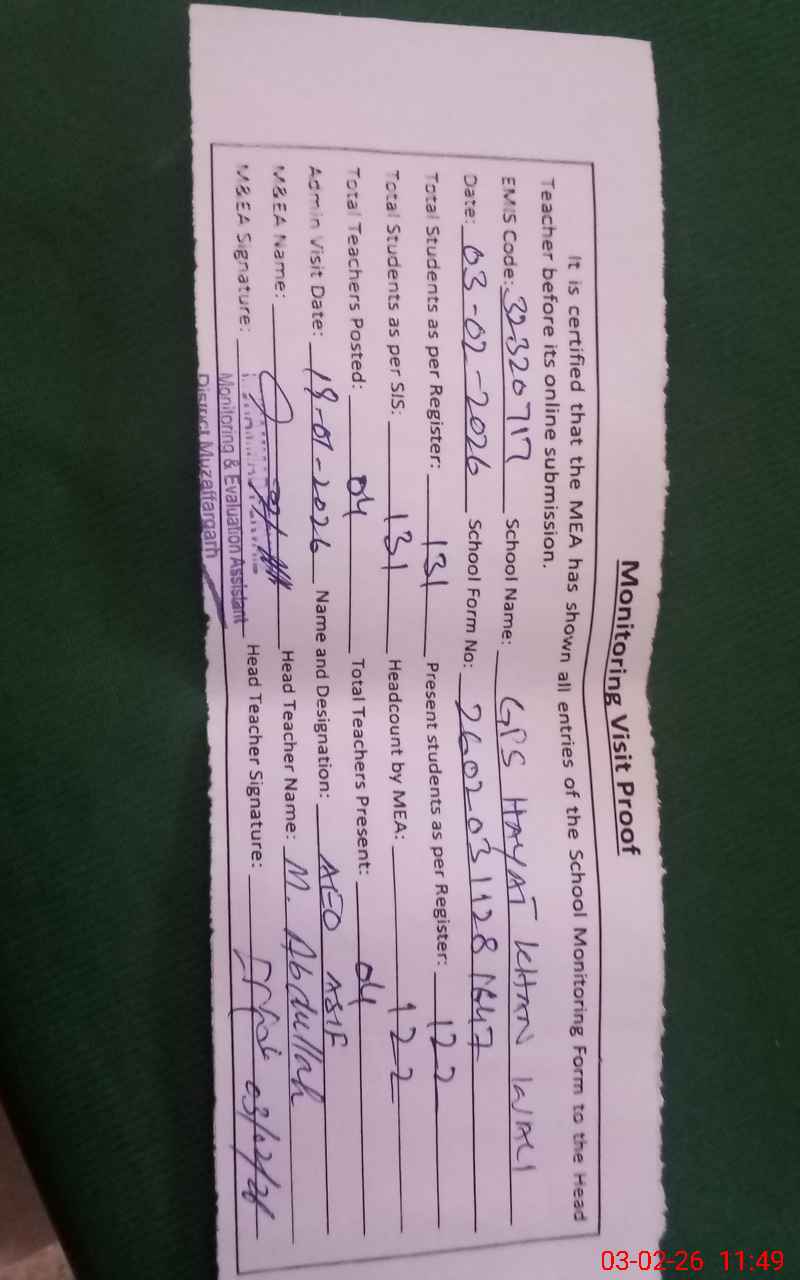 Monitoring Visit Proof
It is certified that the MEA has shown all entries of the School Monitoring Form to the Head
Teacher before its online submission.
EMIS Code: 32320717 School Name: GPS HAYAT KHAN WALI
Date: 03-02-2026 School Form No:
Total Students as per Register: 131 Present students as per Register: 122
Total Students as per SIS: 131 Headcount by MEA: 122
Total Teachers Posted: 04 Total Teachers Present: 04
Admin Visit Date: 19-01-2026 Name and Designation: AEO ASIF
M&EA Name: Head Teacher Name: M. Abdullah
M&EA Signature: Head Teacher Signature: 03/02/26
Monitoring & Evaluation Assistant
District Muzaffargarh
03-02-26 11:49